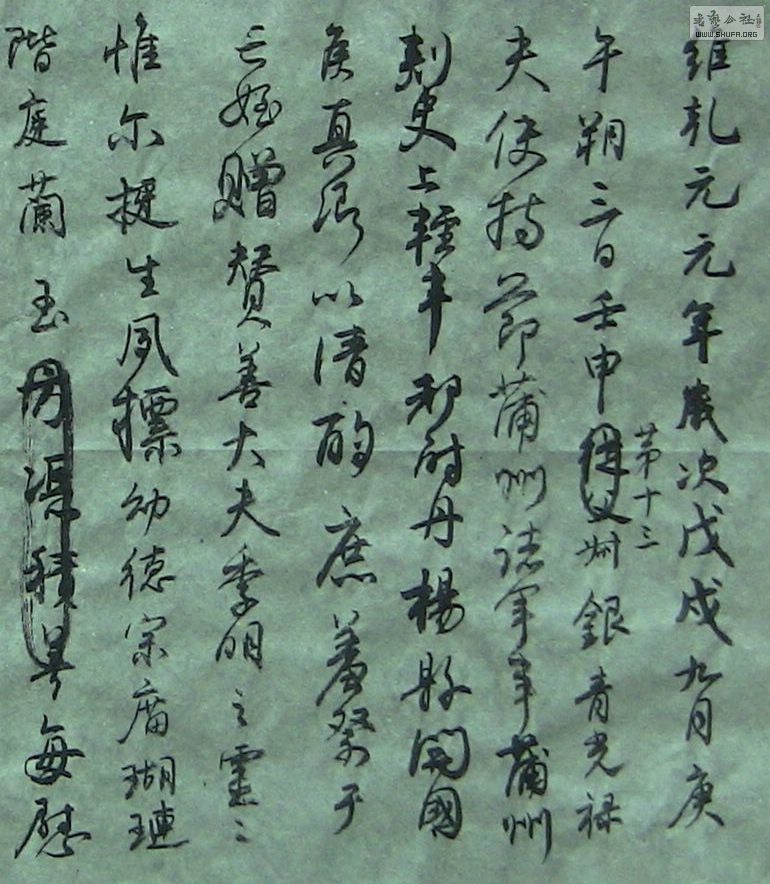 維乾元元年歲次戊戌九月庚
第十三
午朔三日壬申從父叔銀青光祿
夫使持節蒲州諸軍事蒲州
刺史上輕車都尉丹楊縣開國
侯真卿以清酌庶羞祭于
亡姪贈贊善大夫季明之靈曰
惟尔挺生夙標幼德宗廟瑚璉
階庭蘭玉方憑積每慰
書藝公社
WWW.SHUFA.ORG